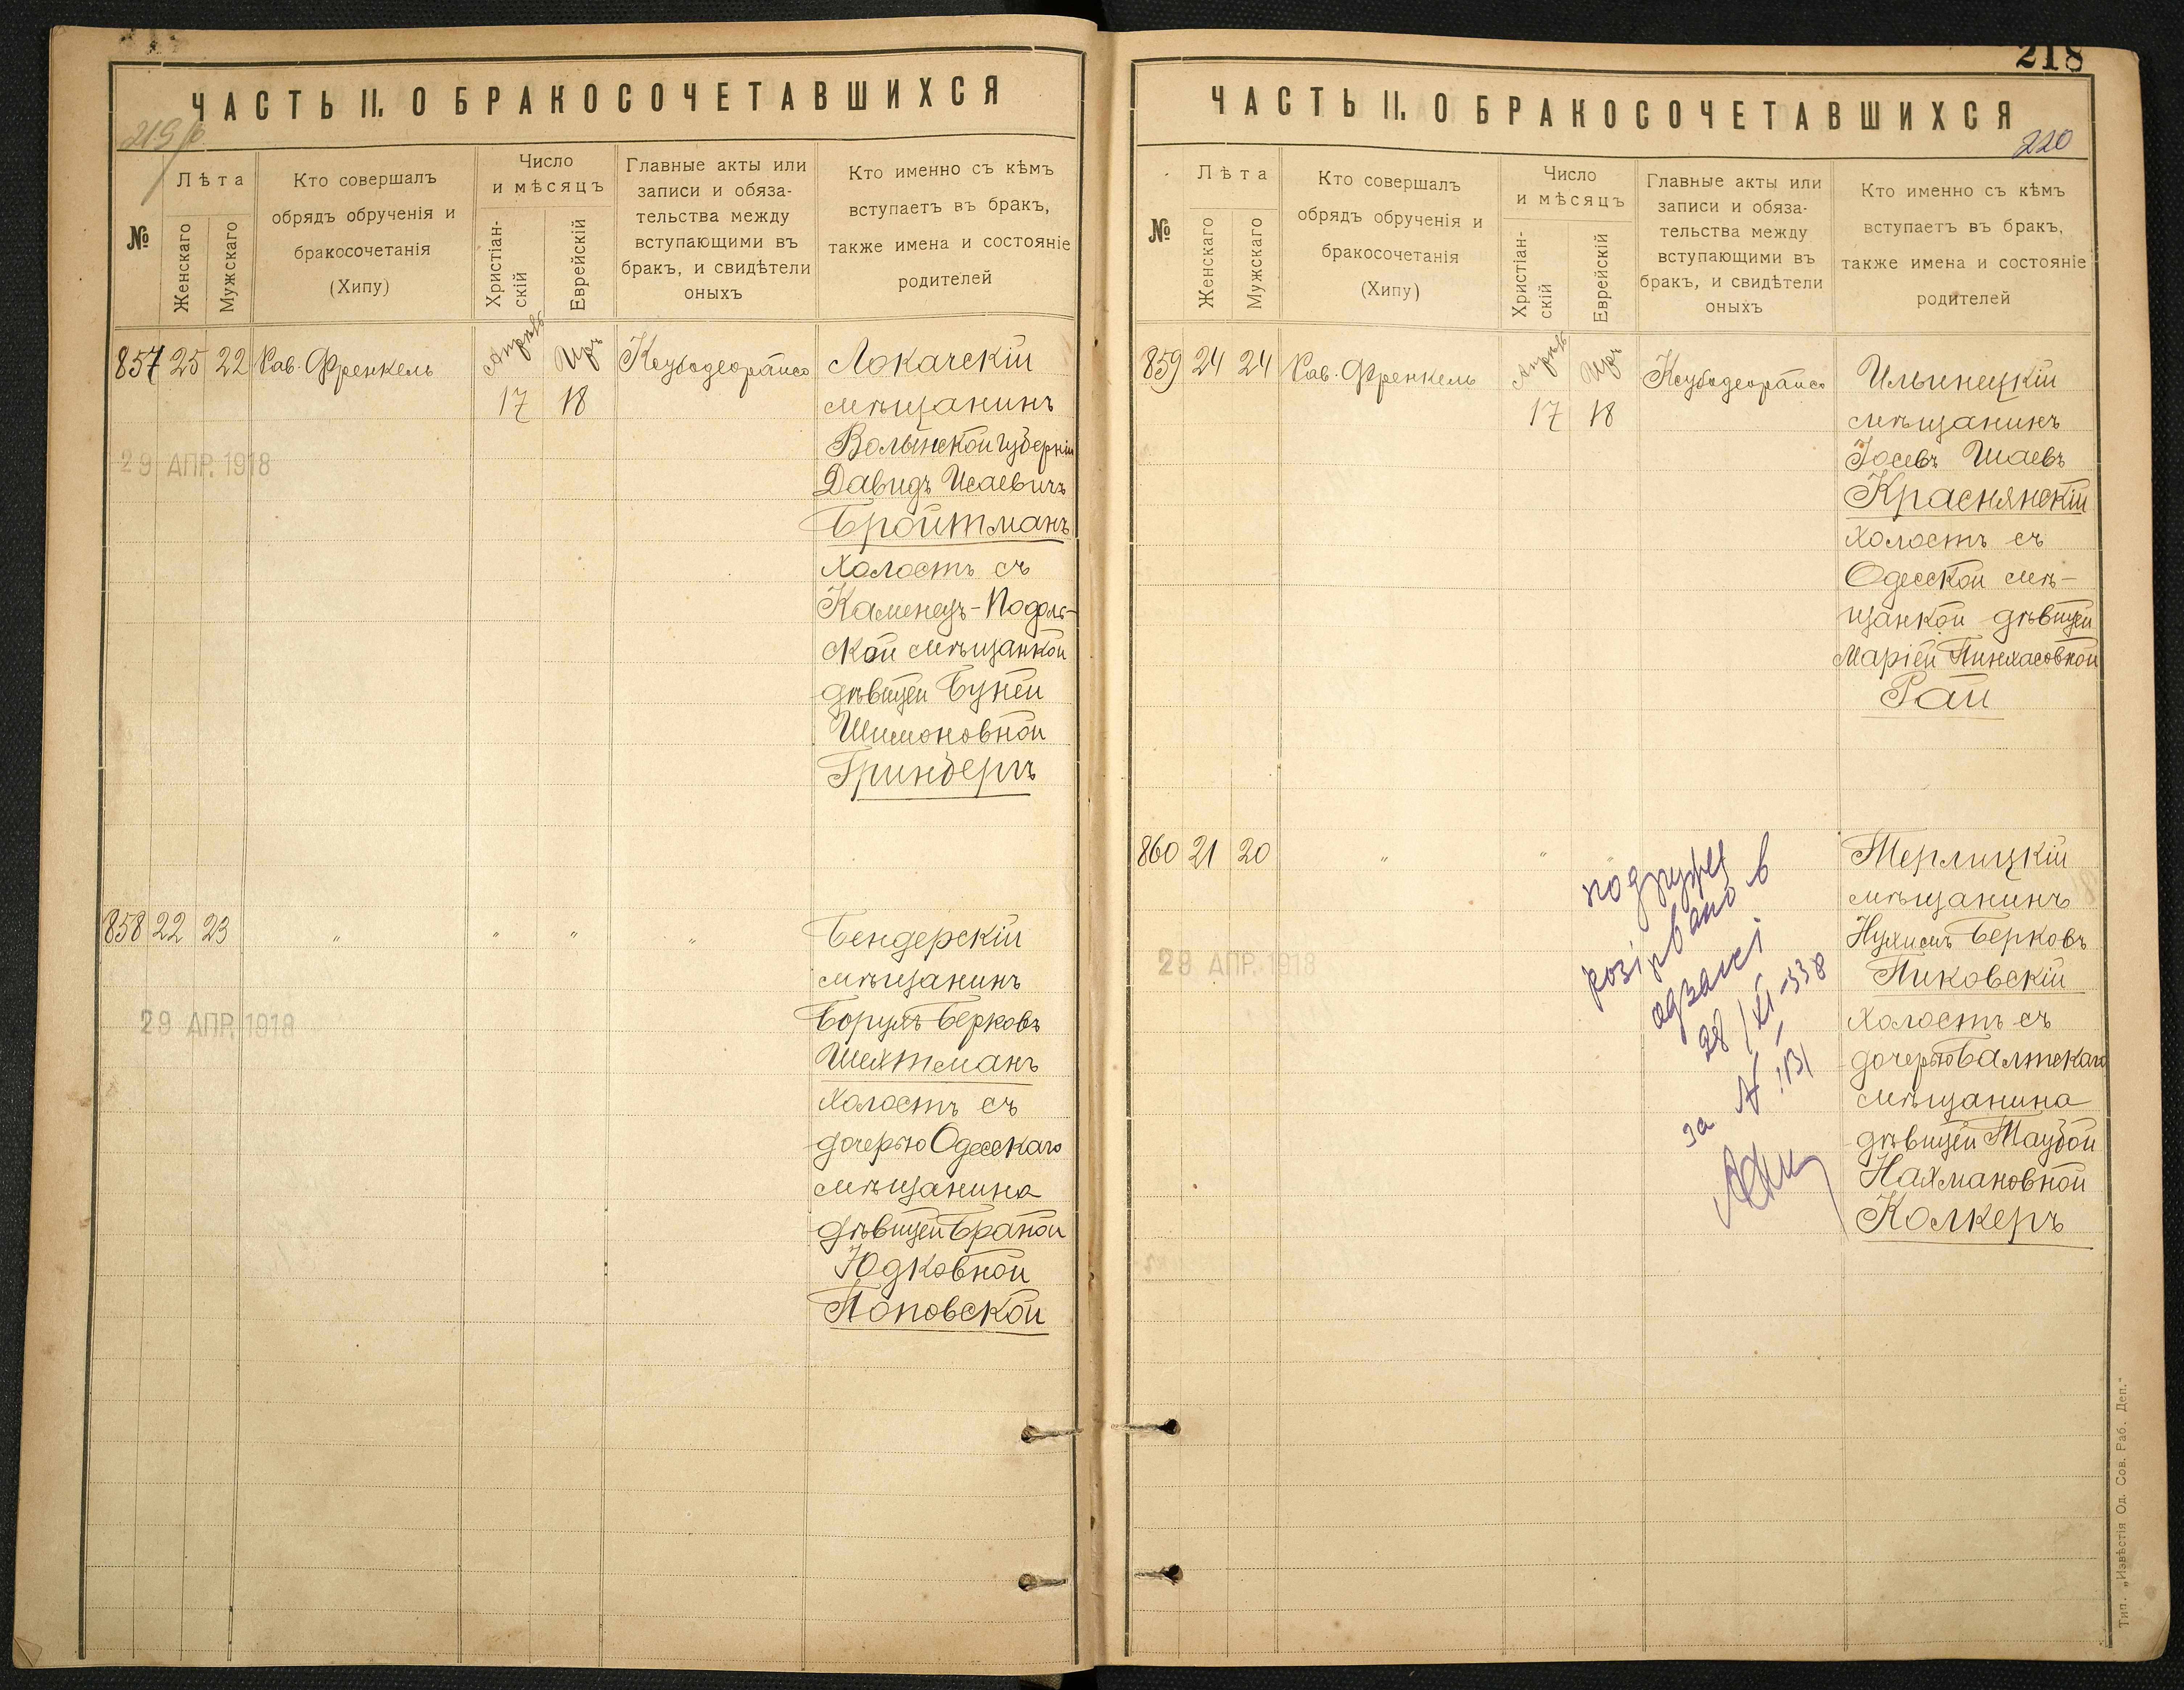 ЧАСТЬ II. О БРАКОСОЧЕТАВШИХСЯ
219
№
Лѣта
Женскаго
Мужскаго
Кто совершалъ
обрядъ обрученія и
бракосочетанія
(Хипу)
Число
и мѣсяцъ
Христіан-
скій
Еврейскій
Главные акты или
записи и обяза-
тельства между
вступающими въ
бракъ, и свидѣтели
оныхъ
Кто именно съ кѣмъ
вступаетъ въ бракъ,
также имена и состояніе
родителей
857 25 22 Рав. Френкель
Апрѣль 17
Иръ 18
Локачскій
мѣщанинъ
Волынской губерніи
Давидъ Исаевичъ
Бройтманъ
холостъ съ
Каменецъ-Подоль-
ской мѣщанкой
дѣвицей Буней
Шимоновной
Гринбергъ
29 АПР. 1918
858 22 23 " " " "
Бендерскій
мѣщанинъ
Борухъ Берковъ
Шехтманъ
холостъ съ
дочерью Одесскаго
мѣщанина
дѣвицей Браной
Юдковной
Поповской
29 АПР. 1918
218
ЧАСТЬ II. О БРАКОСОЧЕТАВШИХСЯ
220
№
Лѣта
Женскаго
Мужскаго
Кто совершалъ
обрядъ обрученія и
бракосочетанія
(Хипу)
Число
и мѣсяцъ
Христіан-
скій
Еврейскій
Главные акты или
записи и обяза-
тельства между
вступающими въ
бракъ, и свидѣтели
оныхъ
Кто именно съ кѣмъ
вступаетъ въ бракъ,
также имена и состояніе
родителей
859 24 24 Рав. Френкель
Апрѣль 17
Иръ 18
Ильинецкій
мѣщанинъ
Іосевъ Шаевъ
Краснянскій
холостъ съ
Одесской мѣ-
щанкой дѣвицей
Маріей Пинхасовной
Рай
860 21 20 " "
Терлицкій
мѣщанинъ
Нухимъ Берковъ
Пиковскій
холостъ съ
дочерью Балтскаго
мѣщанина
дѣвицей Таубой
Нахмановной
Колкеръ
29 АПР. 1918
розірвано в
28/XI-
за №
Тип. „Извѣстія Од. Сов. Раб. Деп."